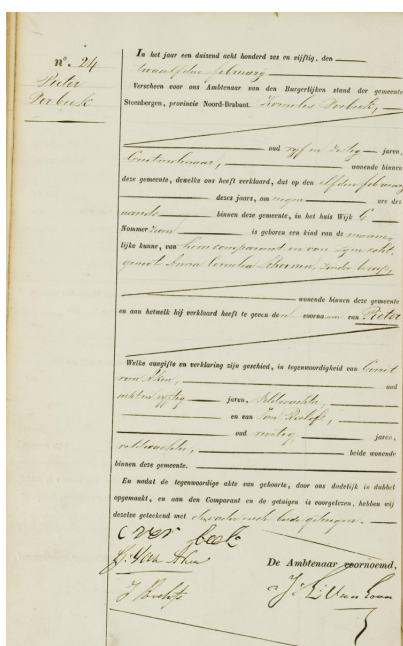 nº. 24
Pieter
Verbeek
In het jaar een duizend acht honderd zes en vijftig, den
twaalfden february
Verscheen voor ons Ambtenaar van den Burgerlijken stand der gemeente
Steenbergen, provincie Noord-Brabant. Kornelis Verbeek,
oud vyf en dertig jaren,
wonende binnen
deze gemeente, dewelke ons heeft verklaard, dat op den elfden february
dezes jaars, om negen ure des
avonds binnen deze gemeente, in het huis Wijk G
Nommer is geboren een kind van de manne-
lijke kunne, van hem comparant en van zyne echt-
genoot Anna Cornelia zonder beroep,
wonende binnen deze gemeente
en aan hetwelk hij verklaard heeft te geven den voornaam van Pieter
Welke aangifte en verklaring zijn geschied, in tegenwoordigheid van Gerrit
van Aken, oud
acht en vyftig jaren, veldwachter,
en van Jan Roelofs,
oud jaren,
veldwachter, beide wonende
binnen deze gemeente.
En nadat de tegenwoordige akte van geboorte, door ons dadelijk in dubbel
opgemaakt, en aan den Comparant en de getuigen is voorgelezen, hebben wij
dezelve geteekend met de beide getuigen.
C Verbeek
G. Van Aken
De Ambtenaar voornoemd,
J Roelofs
Van Loon